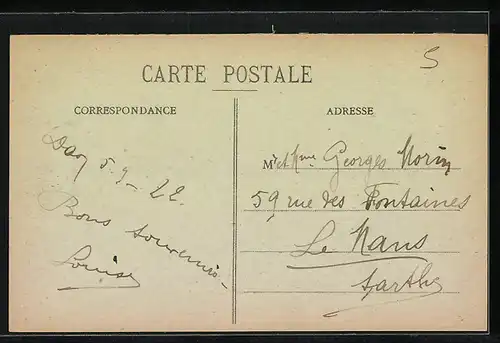 S
CARTE POSTALE
CORRESPONDANCE
ADRESSE
Dax 5-9-22.
Bons souvenirs
Louise
Mr et Mme Georges Morin
59 rue des Fontaines
Le Mans
Sarthe